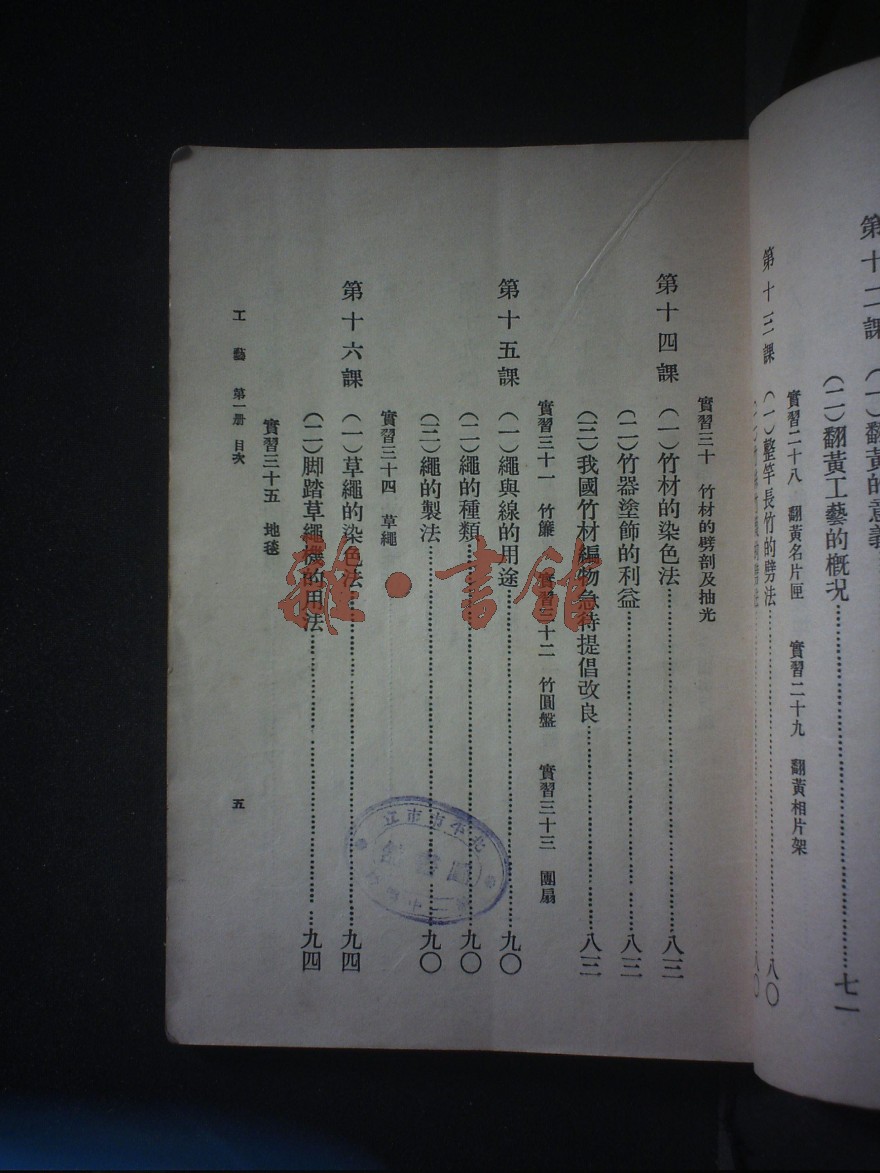 第十二課　(一)翻黃的意義
(二)翻黃工藝的概況……七一
實習二十八　翻黃名片匣　實習二十九　翻黃相片架
第十三課　(一)整竿長竹的劈法……八〇
八〇
實習三十　竹材的劈剖及抽光
第十四課　(一)竹材的染色法……八三
(二)竹器塗飾的利益……八三
(三)我國竹材編物急待提倡改良……八三
實習三十一　竹簾　實習三十二　竹圓盤　實習三十三　團扇
第十五課　(一)繩與線的用途……九〇
(二)繩的種類……九〇
(三)繩的製法……九〇
實習三十四　草繩
第十六課　(一)草繩的染色法……九四
(二)脚踏草繩機的用法……九四
實習三十五　地毯
工藝　第一册　目次　五
雜·書館
北平市市立